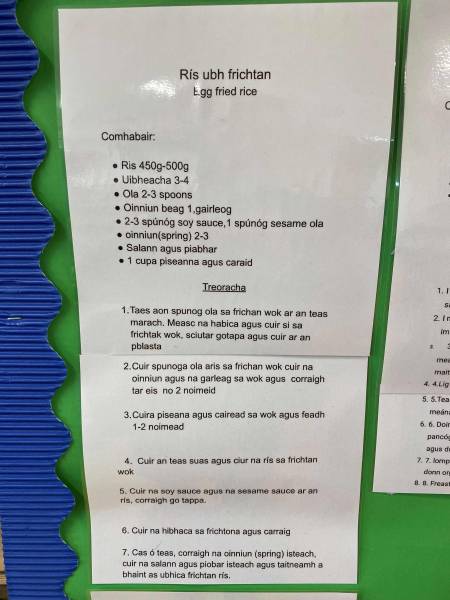 Rís ubh frichtan
Egg fried rice
Comhabair:
● Ris 450g-500g
● Uibheacha 3-4
● Ola 2-3 spoons
● Oinniun beag 1,gairleog
● 2-3 spúnóg soy sauce,1 spúnóg sesame ola
● oinniun(spring) 2-3
● Salann agus piabhar
● 1 cupa piseanna agus caraid
Treoracha
1.Taes aon spunog ola sa frichan wok ar an teas
marach. Measc na habica agus cuir si sa
frichtak wok, sciutar gotapa agus cuir ar an
pblasta
2.Cuir spunoga ola aris sa frichan wok cuir na
oinniun agus na garleag sa wok agus corraigh
tar eis no 2 noimeid
3.Cuira piseana agus cairead sa wok agus feadh
1-2 noimead
4. Cuir an teas suas agus ciur na rís sa frichtan
wok
5. Cuir na soy sauce agus na sesame sauce ar an
rís, corraigh go tappa.
6. Cuir na hibhaca sa frichtona agus carraig
7. Cas ó teas, corraigh na oinniun (spring) isteach,
cuir na salann agus piobar isteach agus taitneamh a
bhaint as ubhica frichtan rís.
1. I
2. I r
im
3.
mea
mait
4. 4.Lig
5. 5.Tea
meána
6. 6. Doir
pancóg
agus d
7. 7. Iomp
donn or
8. 8. Freast